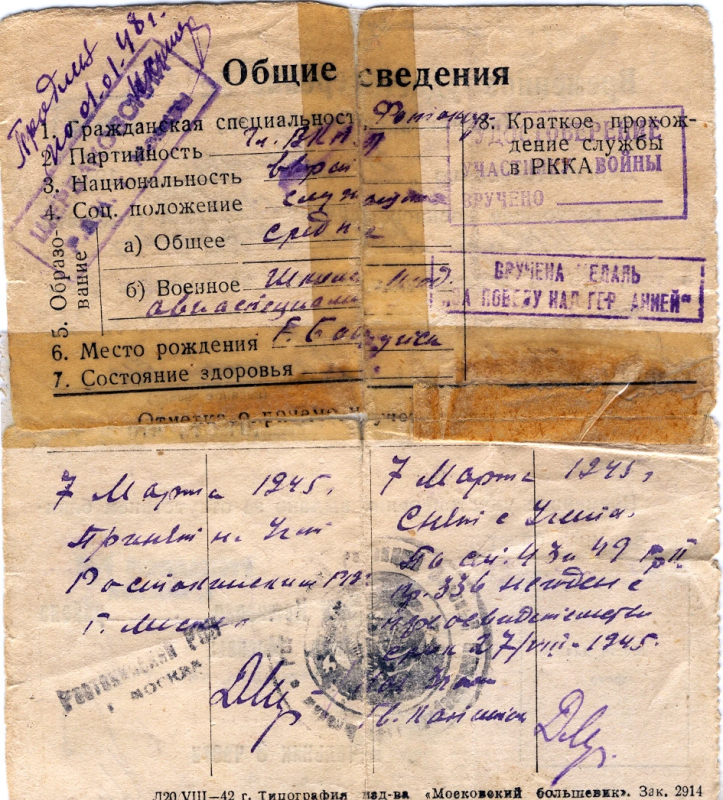 Продлен
по 01.01.48 г.
Общие сведения
1. Гражданская специальност
2. Партийность чл. ВКП
3. Национальность еврей
4. Соц. положение служащ
5. Образование
а) Общее средне
б) Военное Школа
авиаспециали
6. Место рождения г.
7. Состояние здоровья
8. Краткое прохождение службы в РККА
УДОСТОВЕРЕНИЕ
УЧАСТНИКА ВОЙНЫ
ВРУЧЕНО
ВРУЧЕНА МЕДАЛЬ
"ЗА ПОБЕДУ НАД ГЕРМАНИЕЙ"
Отметка о приеме и
7 Марта 1945 г.
Принят на учет
Ростокинским РВК
г. Москвы
Ростокинский РВК
г. МОСКВА
7 Марта 1945 г.
Снят с учета
По ст. 43 и 49 гр. II
пр. 336 негоден с
переосвидетельств
срок 27/VIII-1945.
Л20/VIII—42 г. Типография изд-ва «Московский большевик». Зак. 2914